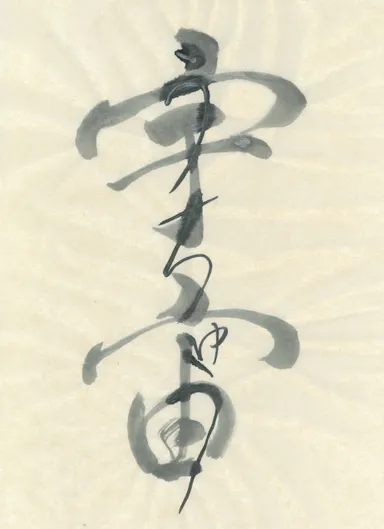 宇宙
うちゅう